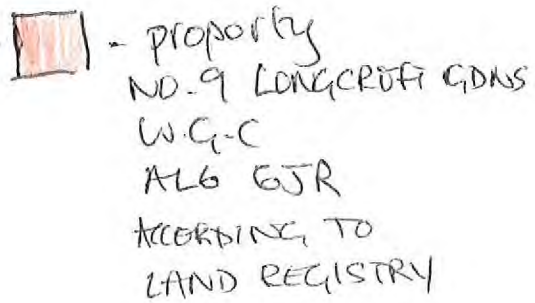 - property
NO. 9 LONGCROFT GDNS
W.G.C
AL8 6JR
ACCORDING TO
LAND REGISTRY